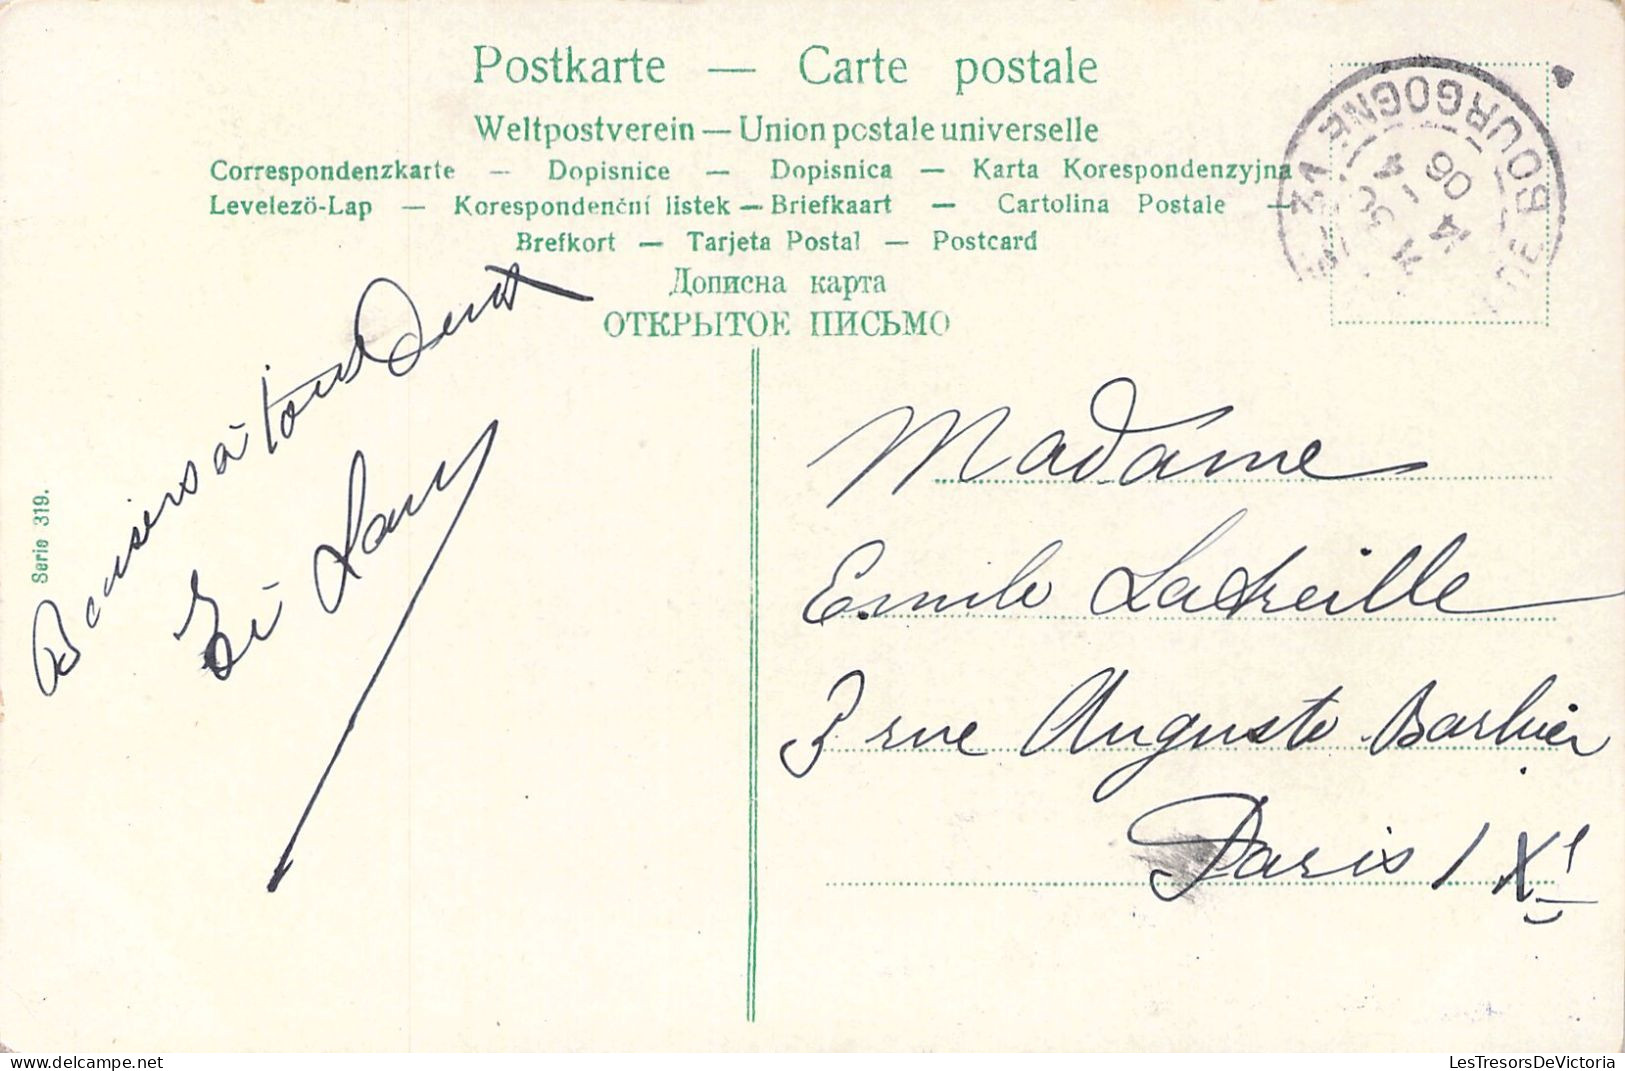 Postkarte — Carte postale
Weltpostverein — Union postale universelle
Correspondenzkarte — Dopisnice — Dopisnica — Karta Korespondenzyjna
Levelező-Lap — Korespondenční listek — Briefkaart — Cartolina Postale —
Brefkort — Tarjeta Postal — Postcard
Дописна карта
ОТКРЫТОЕ ПИСЬМО
BOURGOGNE
14
06
Serie 319.
Baisers à tous
Madame
Emile Latreille
3 rue Auguste Barbier
Paris XIe
LesTresorsDeVictoria